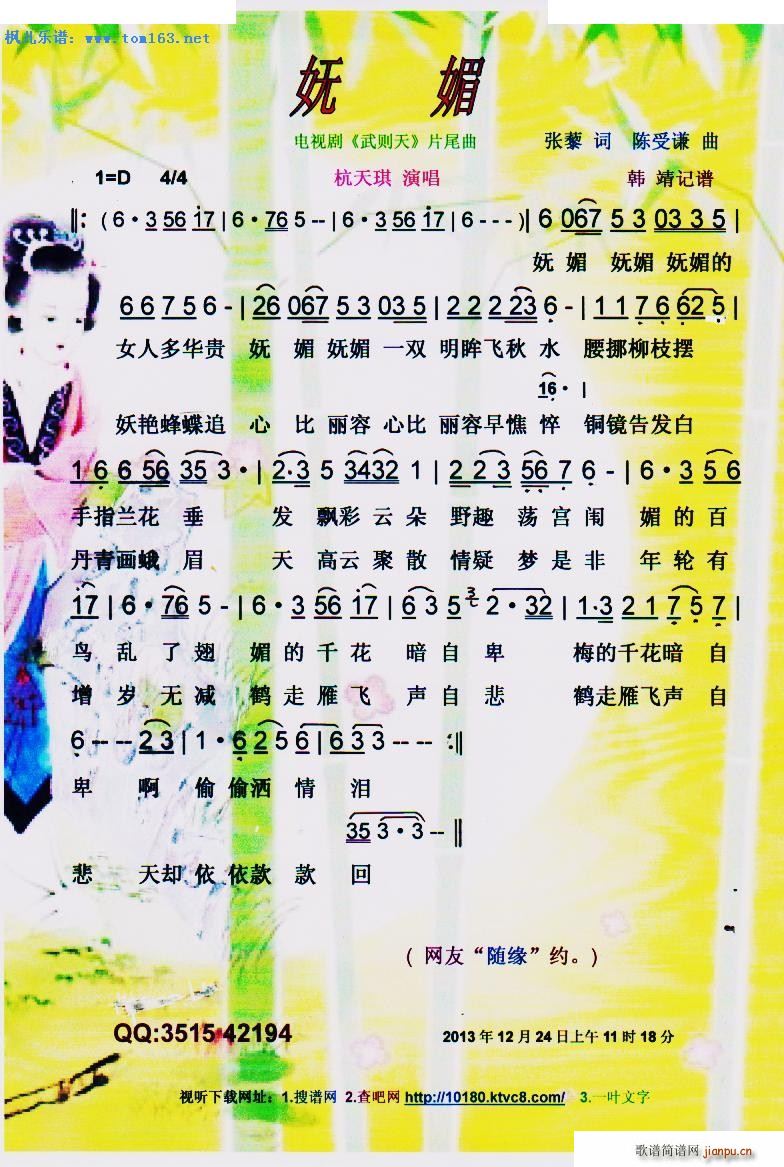 枫儿乐谱：www.tom163.net
妩 媚
电视剧《武则天》片尾曲 张藜 词 陈受谦 曲
1=D 4/4 杭天琪 演唱 韩 靖记谱
‖: ( 6 · 3 56 17 | 6 · 76 5 -- | 6 · 3 56 17 | 6 - - - ) | 6 067 5 3 03 3 5 |
妩 媚 妩媚 妩媚的
6 6 7 5 6 - | 26 067 5 3 03 5 | 2 2 2 23 6 - | 1 1 7 6 62 5 |
女人多华贵 妩 媚 妩媚 一双 明眸飞秋 水 腰挪柳枝摆
16 · |
妖艳蜂蝶追 心 比 丽容 心比 丽容早憔 悴 铜镜告发白
1 6 6 56 35 3 · | 2 · 3 5 3432 1 | 2 2 3 56 7 6 - | 6 · 3 5 6
手指兰花 垂 发 飘彩 云 朵 野趣 荡宫 闱 媚 的 百
丹青画蛾 眉 天 高云 聚 散 情疑 梦 是 非 年 轮 有
17 | 6 · 76 5 - | 6 · 3 56 17 | 6 3 5 2 · 32 | 1 · 3 2 1 7 5 7 |
鸟 乱 了 翅 媚 的 千 花 暗 自 卑 梅的千花暗 自
增 岁 无 减 鹤 走 雁 飞 声 自 悲 鹤走雁飞声 自
6 -- -- 2 3 | 1 · 6 2 5 6 | 6 3 3 -- -- :‖
卑 啊 偷 偷洒 情 泪
35 3 · 3 -- ‖
悲 天却 依 依款 款 回
( 网友“随缘”约。)
QQ:3515 42194 2013 年 12 月 24 日上午 11 时 18 分
视听下载网址：1.搜谱网 2.查吧网 http://10180.ktvc8.com/ 3.一叶文字
歌谱简谱网
jianpu.cn